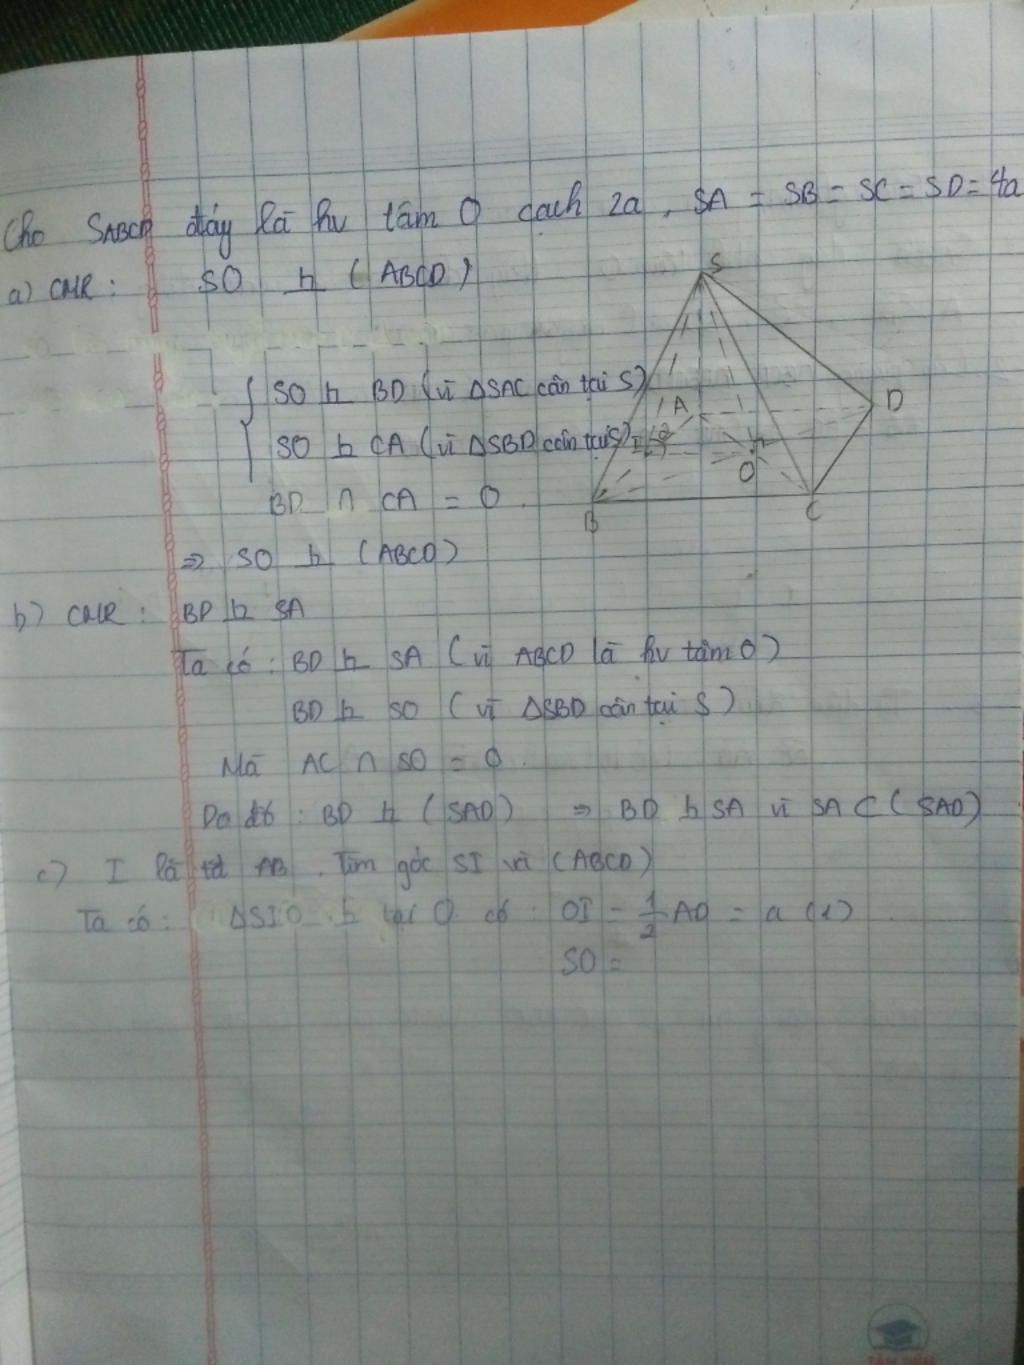 Cho SABCD đáy là hv tâm O cạch 2a, SA = SB = SC = SD = 4a
a) CMR: SO ⊥ (ABCD)
S
SO ⊥ BD (vì ΔSAC cân tại S)
A
D
SO ⊥ CA (vì ΔSBD cân tại S)
I
O
BD ∩ CA = O.
B
C
⇒ SO ⊥ (ABCD)
b) CMR: BD ⊥ SA
Ta có: BD ⊥ SA (vì ABCD là hv tâm O)
BD ⊥ SO (vì ΔSBD cân tại S)
Mà AC ∩ SO = O.
Do đó: BD ⊥ (SAO) ⇒ BD ⊥ SA vì SA ⊂ (SAO)
c) I là tđ AB. Tìm góc SI và (ABCD)
Ta có: ΔSIO ⊥ tại O có: OI = 1/2 AD = a (1)
SO =